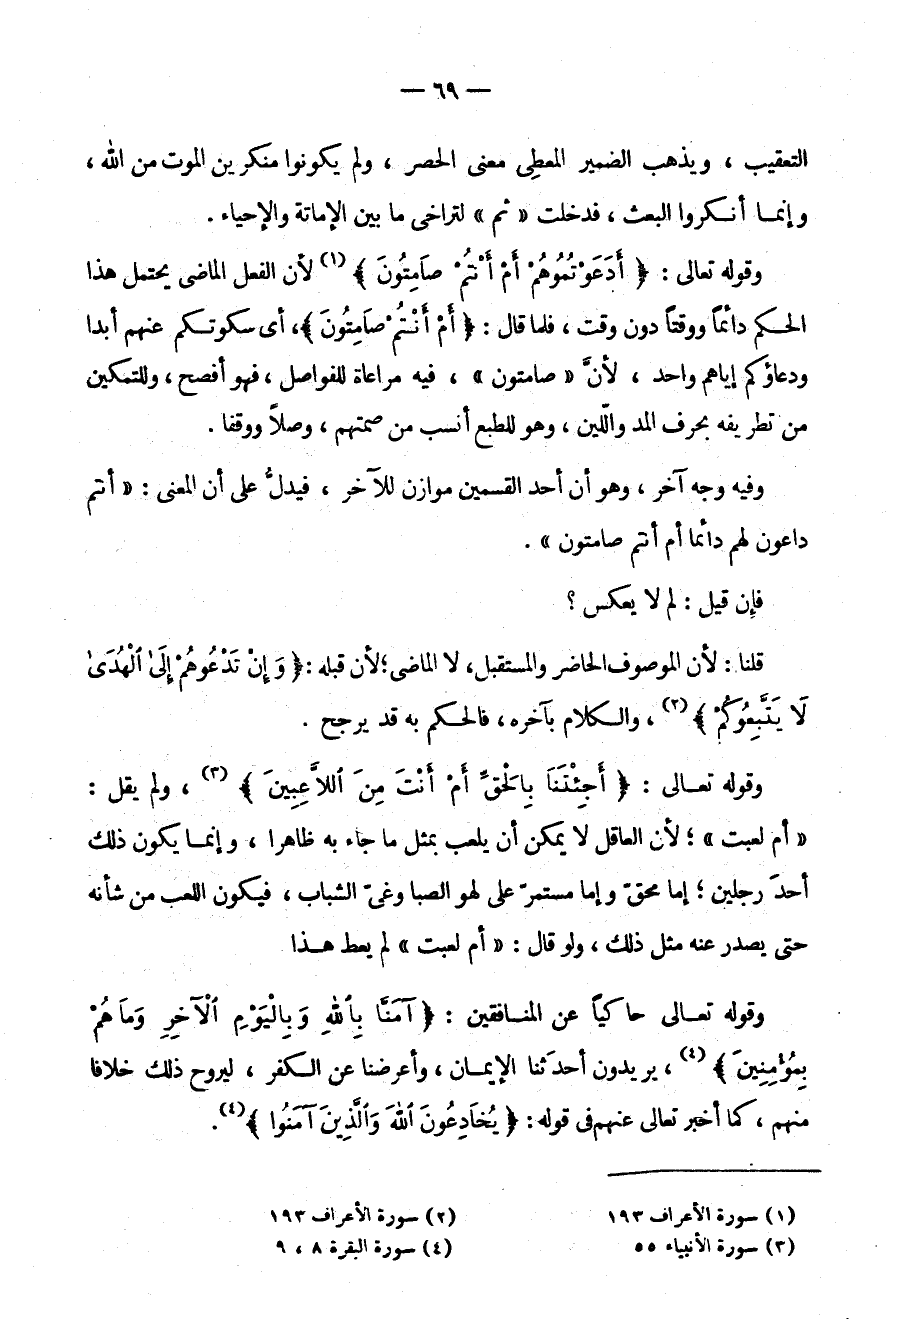 — ٦٩ —
التعقيب ، ويذهب الضمير المعطِى معنى الحصر ، ولم يكونوا منكرين الموت من الله ،
وإنمـا أنـكروا البعث ، فدخلت « ثم » لتراخى ما بين الإماتة والإحياء .
وقوله تعالى : ﴿ أَدَعَوْتُمُوهُمْ أَمْ أَنْتُمْ صَامِتُونَ ﴾ (١) لأن الفعل الماضى يحتمل هذا
الحـكم دائماً ووقتاً دون وقت ، فلما قال : ﴿ أَمْ أَنْتُمْ صَامِتُونَ ﴾، أى سكوتـكم عنهم أبدا
ودعاؤكم إياهم واحد ، لأنَّ « صامتون » ، فيه مراعاة للفواصل ، فهو أفصح ، وللتمكين
من تطريفه بحرف المد واللّين ، وهو للطبع أنسب من صمتهم ، وصلاً ووقفا .
وفيه وجه آخر ، وهو أن أحد القسمين موازن للآخر ، فيدلُّ على أن المعنى : « أنتم
داعون لهم دائما أم أنتم صامتون » .
فإن قيل : لم لا يعكس ؟
قلنا : لأن الموصوف الحاضر والمستقبل، لا الماضى؛ لأن قبله : ﴿ وَإِنْ تَدْعُوهُمْ إِلَى ٱلْهُدَىٰ
لَا يَتَّبِعُوكُمْ ﴾ (٢) ، والـكلام بآخره ، فالحـكم به قد يرجح .
وقوله تعـالى : ﴿ أَجِئْتَنَا بِالْحَقِّ أَمْ أَنْتَ مِنَ ٱللاَّعِبِينَ ﴾ (٣) ، ولم يقل :
« أم لعبت » ؛ لأن العاقل لا يمكن أن يلعب بمثل ما جاء به ظاهرا ، وإنمـا يكون ذلك
أحدَ رجلين ؛ إما محقّ وإما مستمرّ على لهو الصبا وغىّ الشباب ، فيكون اللعب من شأنه
حتى يصدر عنه مثل ذلك ، ولو قال : « أم لعبت » لم يعط هـذا
وقوله تعـالى حاكياً عن المنـافقين : ﴿ آمَنَّا بِٱللهِ وَبِالْيَوْمِ ٱلْآخِرِ وَمَا هُمْ
بِمُؤْمِنِينَ ﴾ (٤) ، يريدون أحدَثنا الإيمـان ، وأعرضنا عن الـكفر ، ليروح ذلك خلافا
منهم ، كما أخبر تعالى عنهم فى قوله : ﴿ يُخَادِعُونَ ٱللهَ وَٱلَّذِينَ آمَنُوا ﴾ (٤).
(١) سورة الأعراف ١٩٣ (٢) سورة الأعراف ١٩٣
(٣) سورة الأنبياء ٥٥ (٤) سورة البقرة ٨ ، ٩